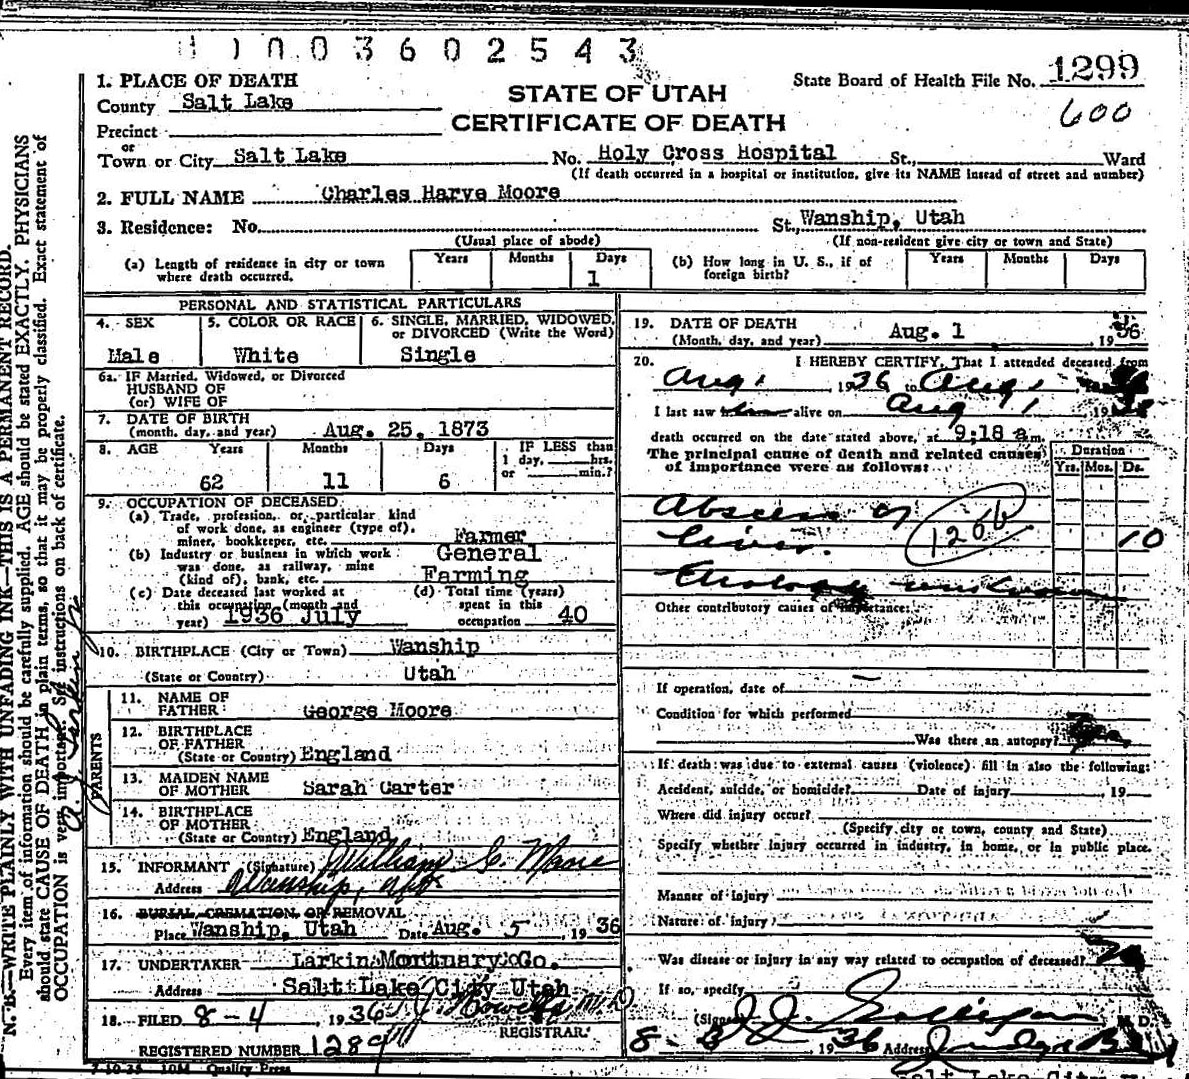 1003602543
1299
State Board of Health File No.
600
STATE OF UTAH
CERTIFICATE OF DEATH
1. PLACE OF DEATH
County Salt Lake
Precinct
or
Town or City Salt Lake No. Holy Cross Hospital St., Ward
(If death occurred in a hospital or institution, give its NAME instead of street and number)
2. FULL NAME Charles Harve Moore
3. Residence: No. St., Wanship, Utah
(Usual place of abode) (If non-resident give city or town and State)
(a) Length of residence in city or town where death occurred. Years Months Days 1
(b) How long in U. S., if of foreign birth? Years Months Days
PERSONAL AND STATISTICAL PARTICULARS
4. SEX Male
5. COLOR OR RACE White
6. SINGLE, MARRIED, WIDOWED, or DIVORCED (Write the Word) Single
6a. IF Married, Widowed, or Divorced
HUSBAND OF
(or) WIFE OF
7. DATE OF BIRTH
(month, day, and year) Aug. 25, 1873
8. AGE Years Months Days IF LESS than
1 day, hrs.
or min.?
62 11 6
9. OCCUPATION OF DECEASED
(a) Trade, profession, or particular kind
of work done, as engineer (type of),
miner, bookkeeper, etc. Farmer
(b) Industry or business in which work General
was done, as railway, mine
(kind of), bank, etc. Farming
(c) Date deceased last worked at
this occupation (month and
year) 1936 July
(d) Total time (years)
spent in this
occupation 40
10. BIRTHPLACE (City or Town) Wanship
(State or Country) Utah
PARENTS
11. NAME OF
FATHER George Moore
12. BIRTHPLACE
OF FATHER
(State or Country) England
13. MAIDEN NAME
OF MOTHER Sarah Carter
14. BIRTHPLACE
OF MOTHER
(State or Country) England
15. INFORMANT (Signature) William C. Moore
Address Wanship, Utah
16. BURIAL, CREMATION, OR REMOVAL
Place Wanship, Utah Date Aug. 5, 1936
17. UNDERTAKER Larkin Mortuary Co.
Address Salt Lake City Utah
18. FILED 8-4, 1936 M. D.
REGISTRAR.
REGISTERED NUMBER 1289
7-10-35 10M Quality Press
19. DATE OF DEATH
(Month, day, and year) Aug. 1, 1936
20. I HEREBY CERTIFY, That I attended deceased from
Aug 1, 1936 to Aug 1,
I last saw alive on Aug 1, 19
death occurred on the date stated above, at 9:18 a.m.
The principal cause of death and related causes
of importance were as follows: Duration
Yrs. Mos. Ds.
Abscess of
liver. 10
126b
Etiology unknown
Other contributory causes of importance:
If operation, date of
Condition for which performed
Was there an autopsy?
If death was due to external causes (violence) fill in also the following:
Accident, suicide, or homicide? Date of injury, 19
Where did injury occur?
(Specify city or town, county and State)
Specify whether injury occurred in industry, in home, or in public place.
Manner of injury
Nature of injury
Was disease or injury in any way related to occupation of deceased? No
If so, specify
(Signed) M. D.
8-3 1936 Address Judge Bldg
Salt Lake City
N. B.—WRITE PLAINLY WITH UNFADING INK—THIS IS A PERMANENT RECORD.
Every item of information should be carefully supplied. AGE should be stated EXACTLY. PHYSICIANS
should state CAUSE OF DEATH in plain terms, so that it may be properly classified. Exact statement of
OCCUPATION is very important. See instructions on back of certificate.